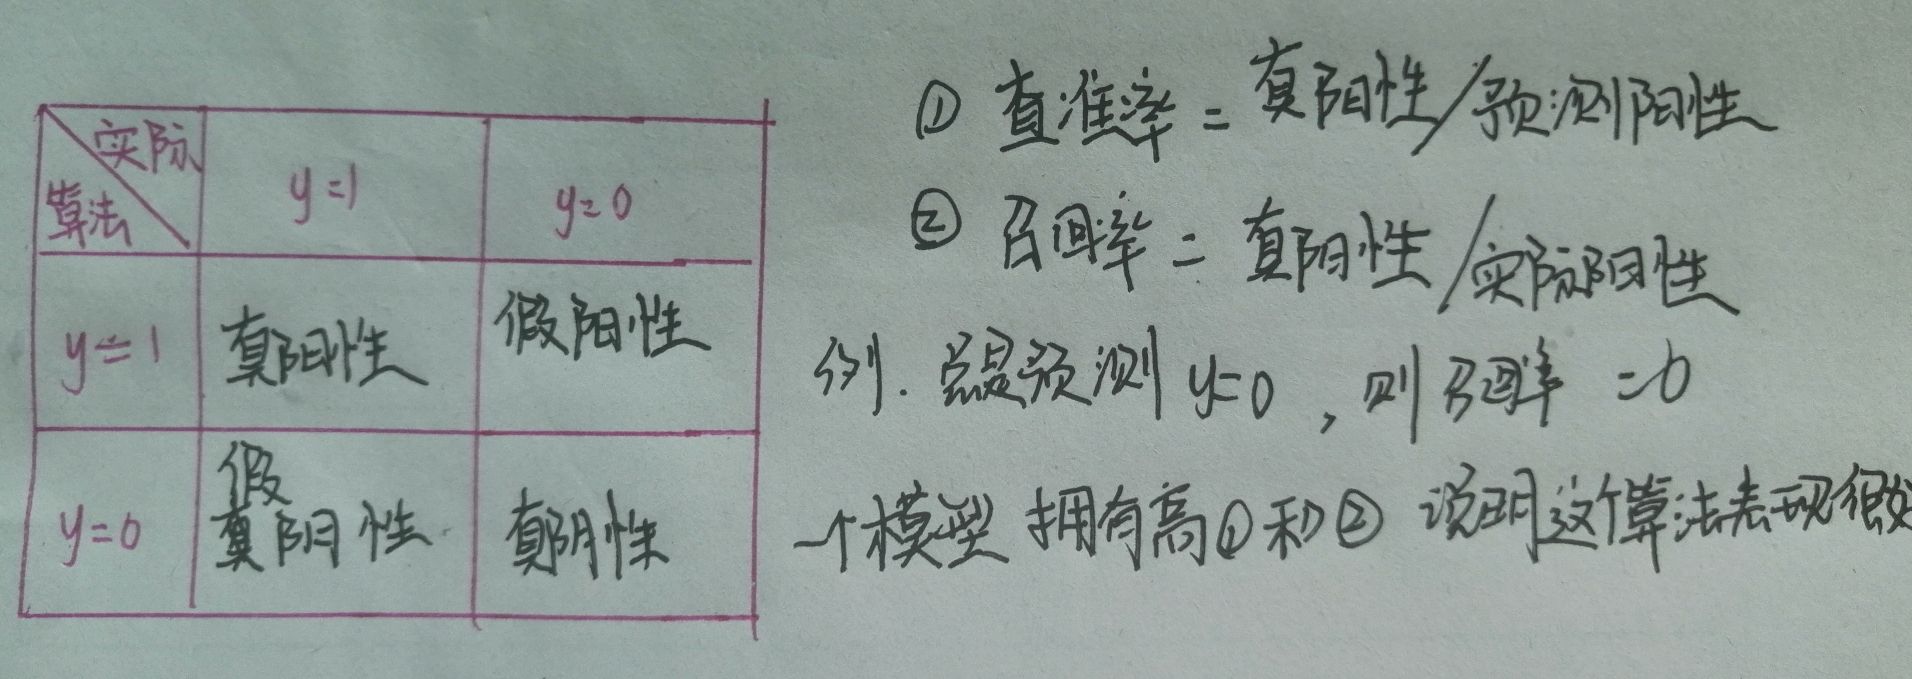 实际
算法
y=1
y=0
y=1
真阳性
假阳性
y=0
假
真阴性
真阴性
① 查准率 = 真阳性/预测阳性
② 召回率 = 真阳性/实际阳性
例. 总是预测 y=0，则召回率 =0
一个模型 拥有高①和② 说明这个算法表现很好